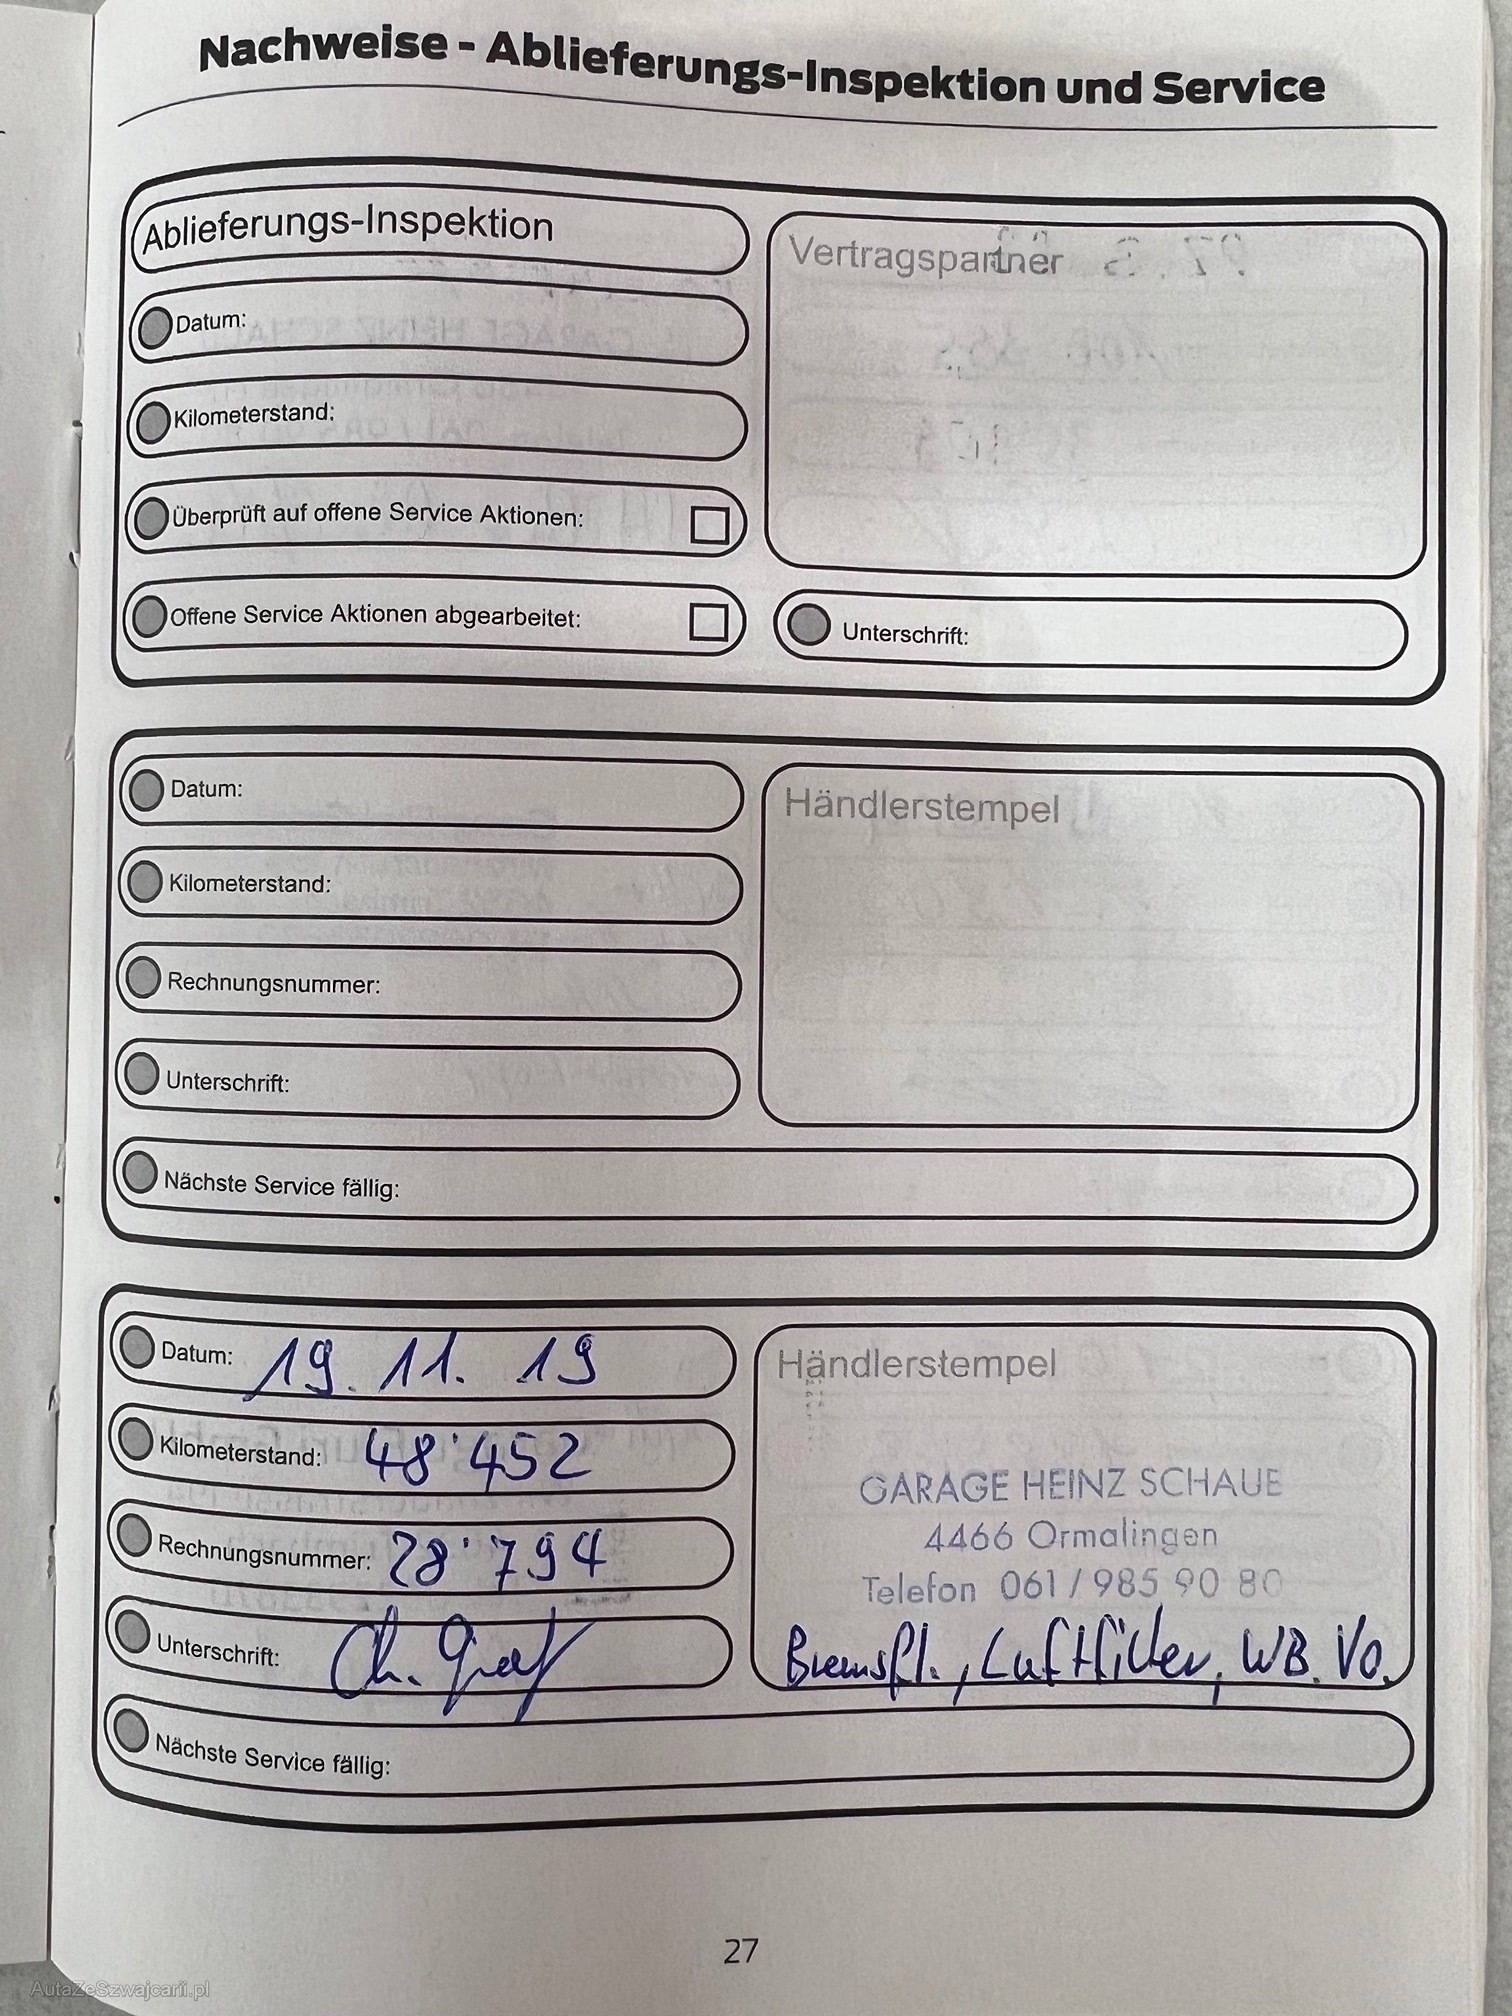 Nachweise - Ablieferungs-Inspektion und Service
Ablieferungs-Inspektion
Datum:
Kilometerstand:
Überprüft auf offene Service Aktionen:
Offene Service Aktionen abgearbeitet:
Vertragspartner
Unterschrift:
Datum:
Kilometerstand:
Rechnungsnummer:
Unterschrift:
Händlerstempel
Nächste Service fällig:
Datum: 19. 11. 19
Kilometerstand: 48'452
Rechnungsnummer: 28'794
Unterschrift: Ch. Graf
Händlerstempel
GARAGE HEINZ SCHAUB
4466 Ormalingen
Telefon 061 / 985 90 80
Bremsfl., Luftfilter, WB. Vo.
Nächste Service fällig:
27
AutaZeSzwajcarii.pl